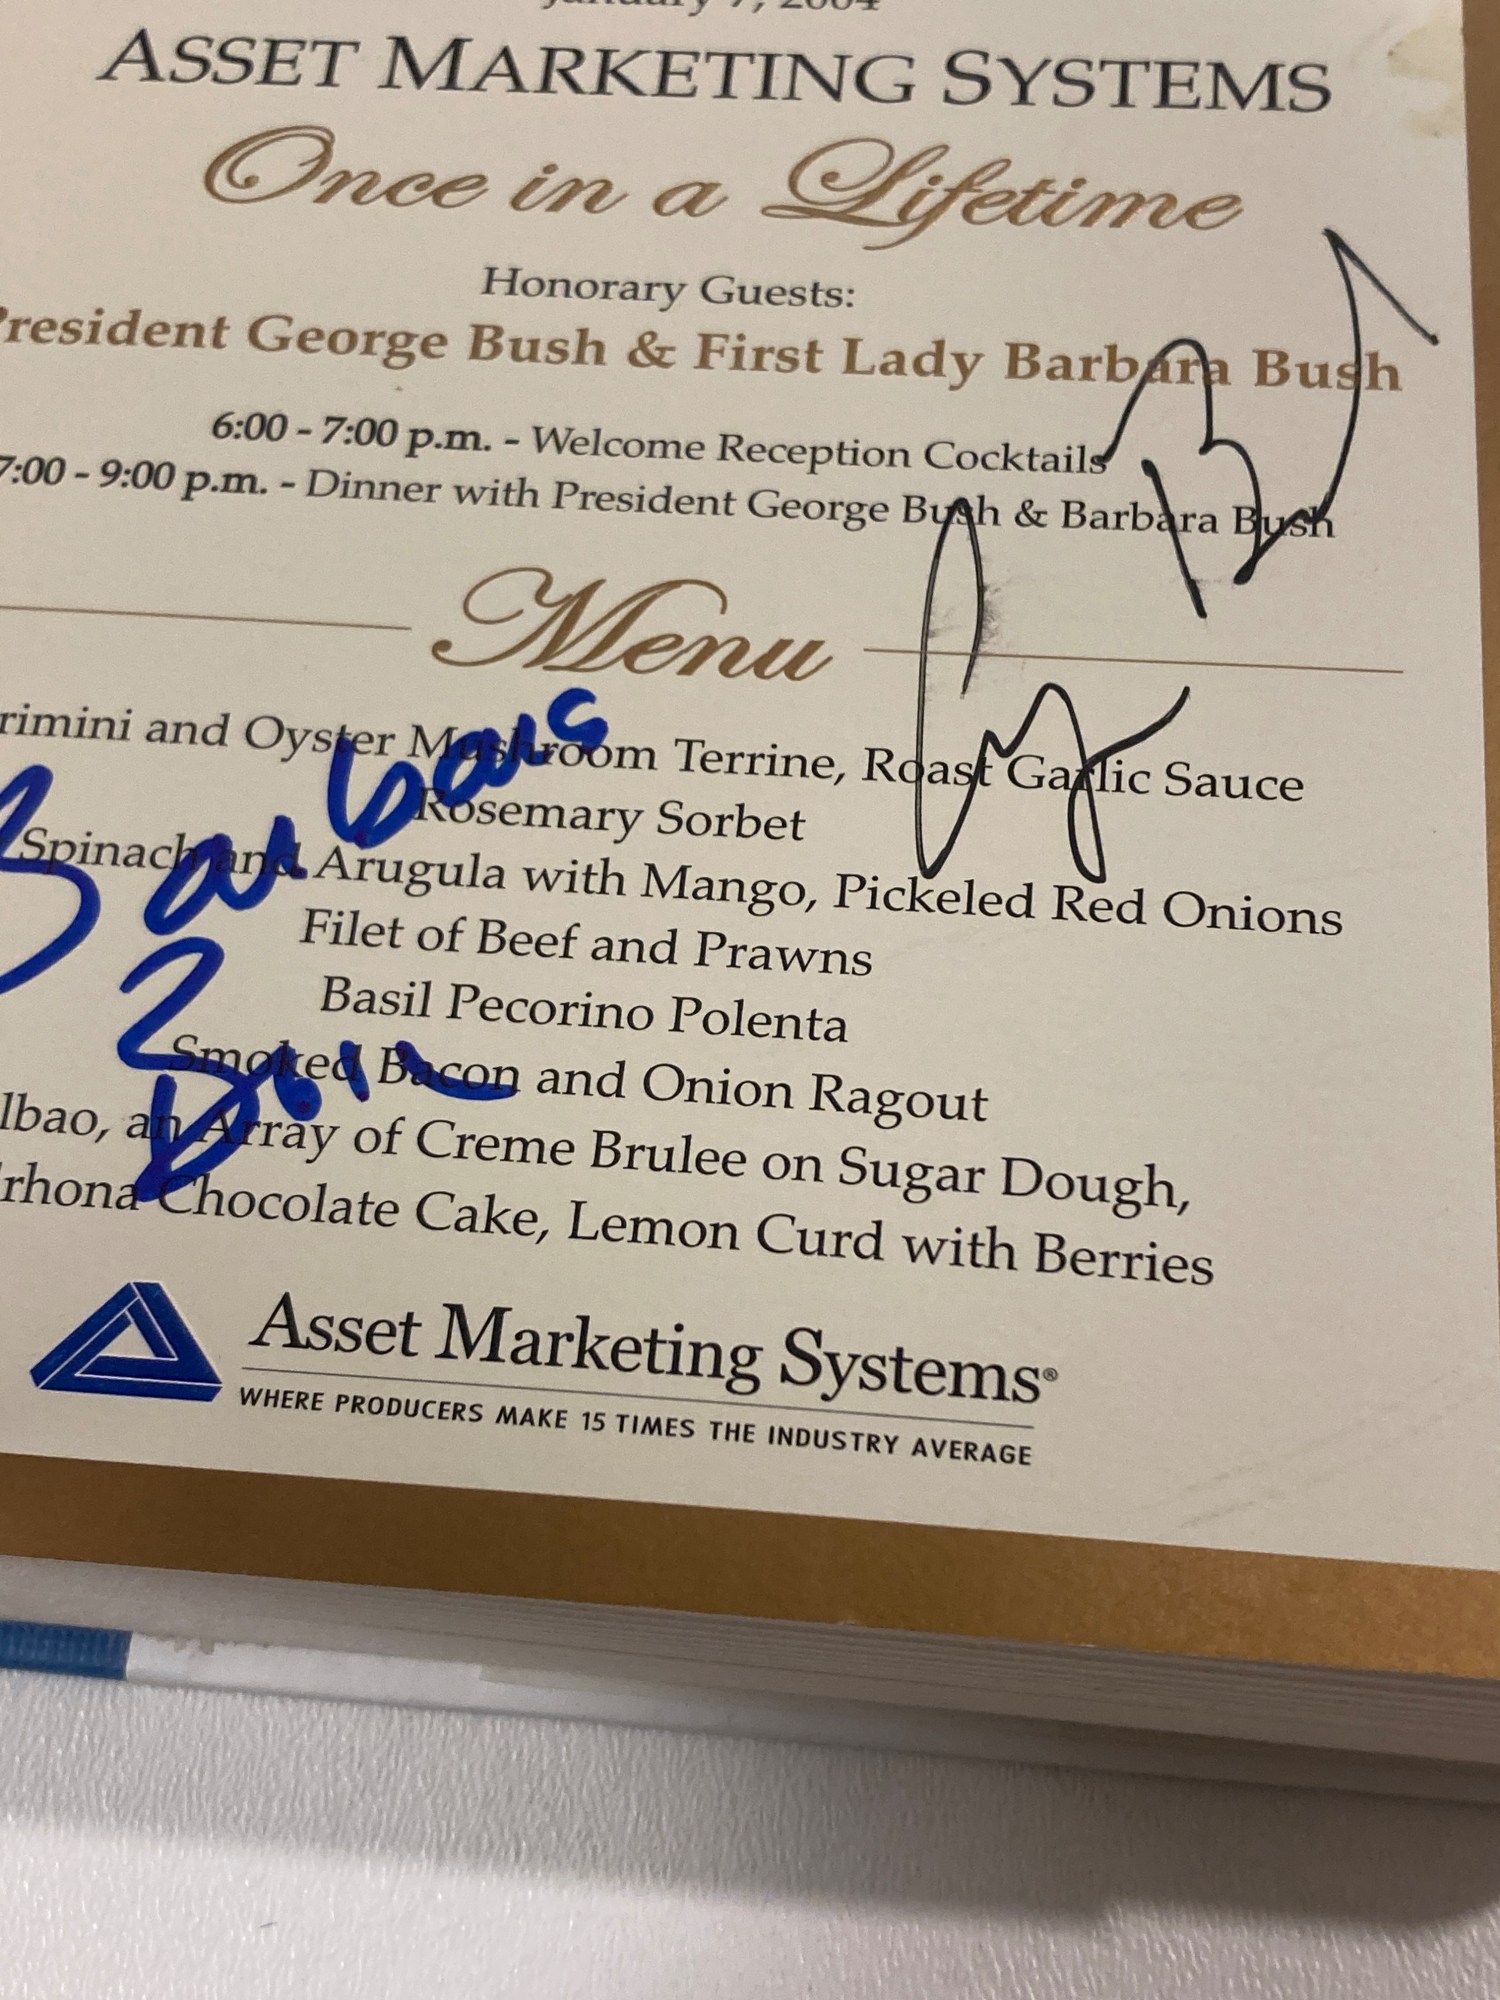 January 7, 2004
ASSET MARKETING SYSTEMS
Once in a Lifetime
Honorary Guests:
President George Bush & First Lady Barbara Bush
6:00 - 7:00 p.m. - Welcome Reception Cocktails
7:00 - 9:00 p.m. - Dinner with President George Bush & Barbara Bush
Menu
rimini and Oyster Mushroom Terrine, Roast Garlic Sauce
Rosemary Sorbet
Spinach and Arugula with Mango, Pickeled Red Onions
Filet of Beef and Prawns
Basil Pecorino Polenta
Smoked Bacon and Onion Ragout
lbao, an Array of Creme Brulee on Sugar Dough,
rhona Chocolate Cake, Lemon Curd with Berries
Asset Marketing Systems®
WHERE PRODUCERS MAKE 15 TIMES THE INDUSTRY AVERAGE